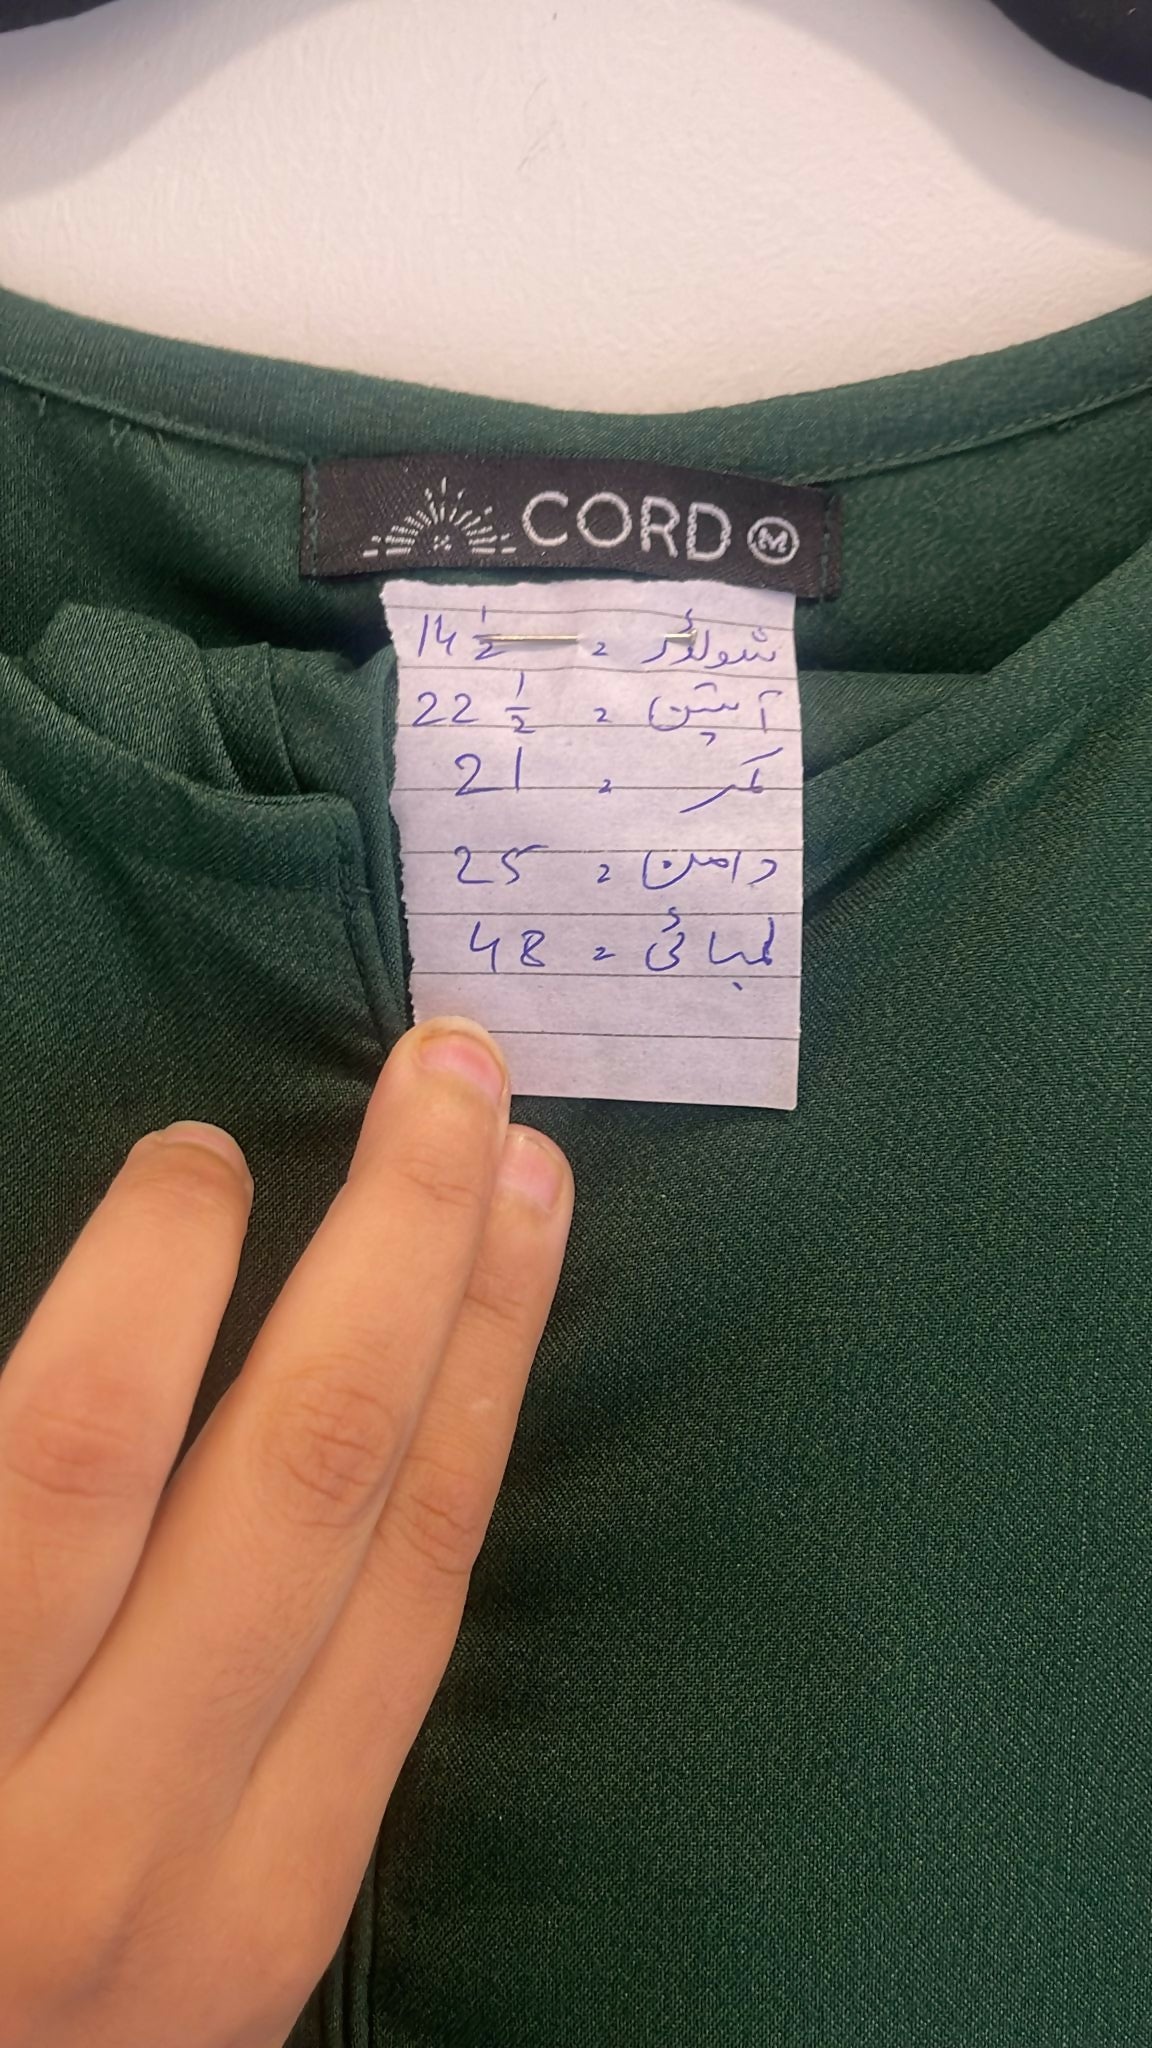 CORD M
شولڈر = 14 1/2
آستین = 22 1/2
کمر = 21
دامن = 25
لمبائی = 48